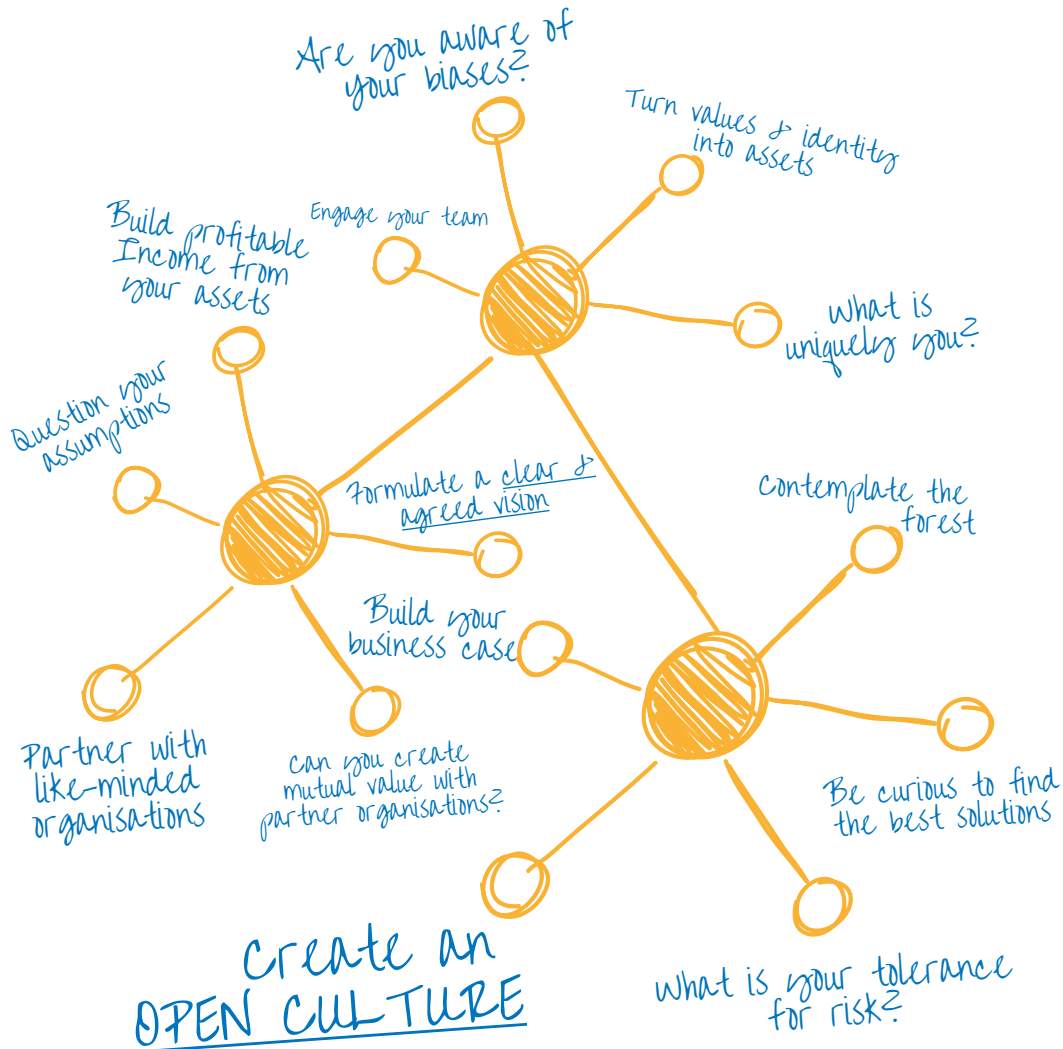 Are you aware of
your biases?
Turn values & identity
into assets
Engage your team
Build profitable
Income from
your assets
What is
uniquely you?
Question your
assumptions
Formulate a clear &
agreed vision
Contemplate the
forest
Build your
business case
Partner with
like-minded
organisations
Can you create
mutual value with
partner organisations?
Be curious to find
the best solutions
Create an
OPEN CULTURE
What is your tolerance
for risk?